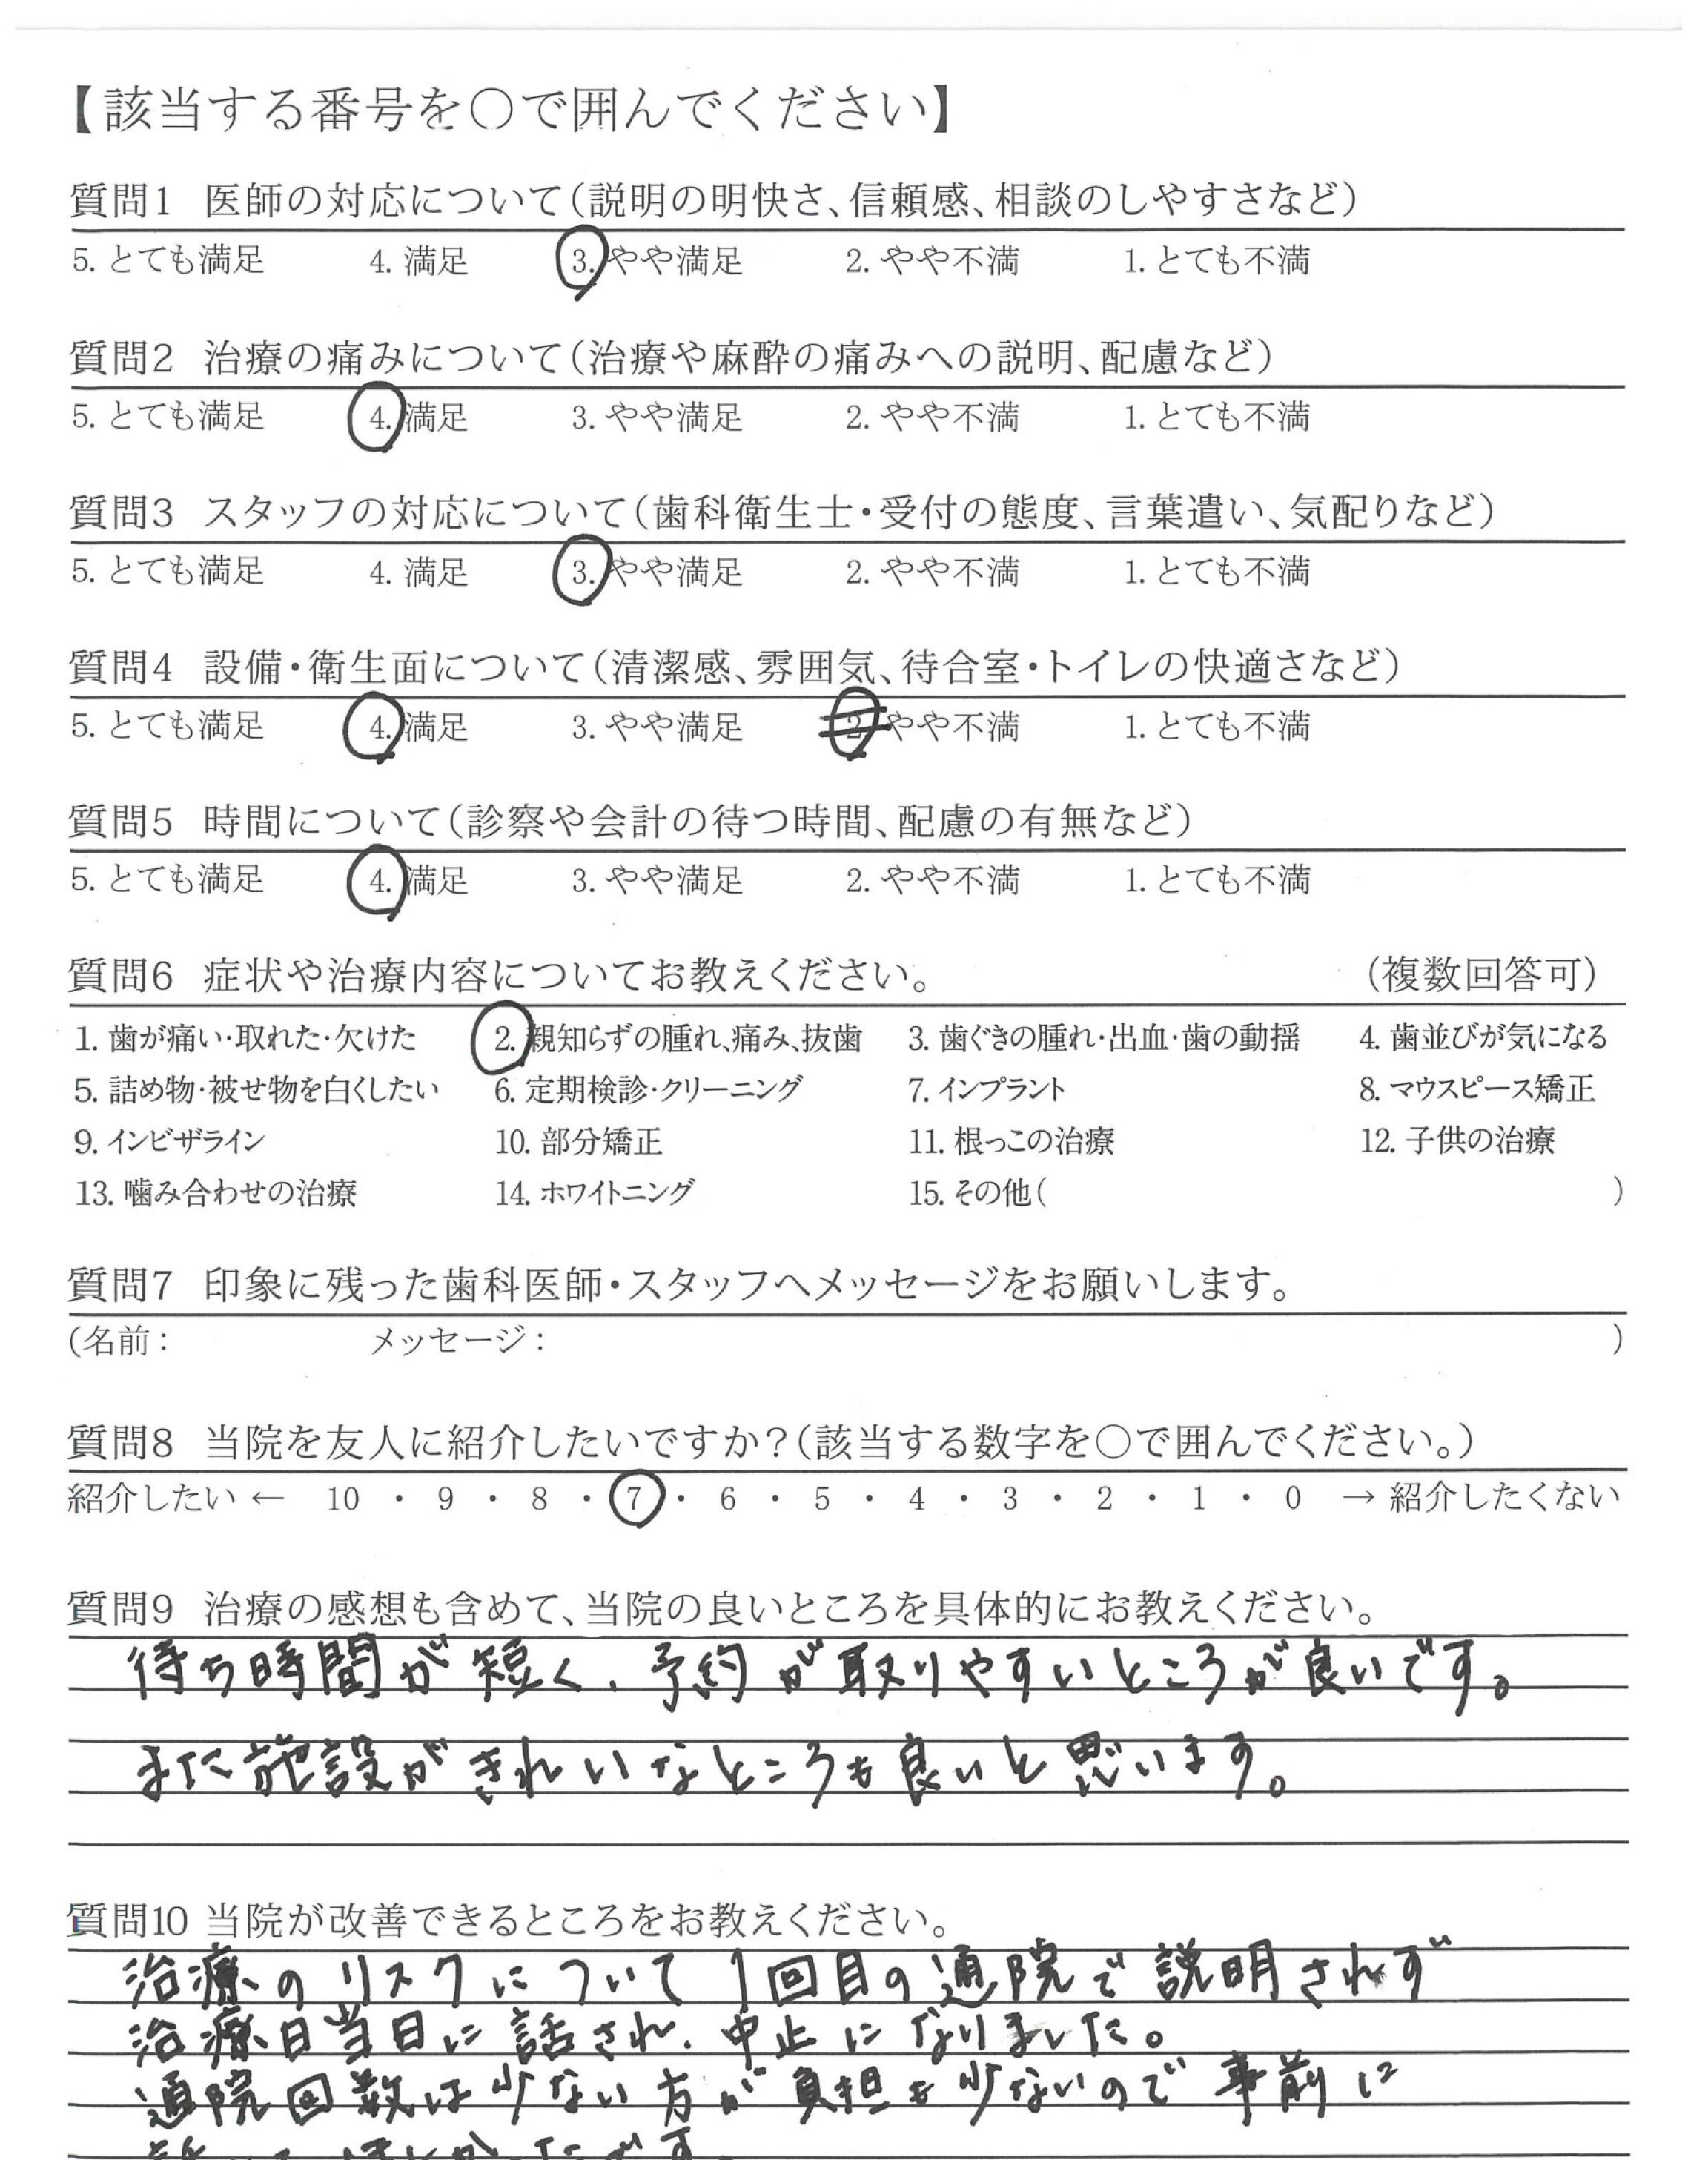 【該当する番号を○で囲んでください】
質問1 医師の対応について(説明の明快さ、信頼感、相談のしやすさなど)
5. とても満足 4. 満足 3. やや満足 2. やや不満 1. とても不満
質問2 治療の痛みについて(治療や麻酔の痛みへの説明、配慮など)
5. とても満足 4. 満足 3. やや満足 2. やや不満 1. とても不満
質問3 スタッフの対応について(歯科衛生士・受付の態度、言葉遣い、気配りなど)
5. とても満足 4. 満足 3. やや満足 2. やや不満 1. とても不満
質問4 設備・衛生面について(清潔感、雰囲気、待合室・トイレの快適さなど)
5. とても満足 4. 満足 3. やや満足 2. やや不満 1. とても不満
質問5 時間について(診察や会計の待つ時間、配慮の有無など)
5. とても満足 4. 満足 3. やや満足 2. やや不満 1. とても不満
質問6 症状や治療内容についてお教えください。 (複数回答可)
1. 歯が痛い・取れた・欠けた 2. 親知らずの腫れ、痛み、抜歯 3. 歯ぐきの腫れ・出血・歯の動揺 4. 歯並びが気になる
5. 詰め物・被せ物を白くしたい 6. 定期検診・クリーニング 7. インプラント 8. マウスピース矯正
9. インビザライン 10. 部分矯正 11. 根っこの治療 12. 子供の治療
13. 噛み合わせの治療 14. ホワイトニング 15. その他( )
質問7 印象に残った歯科医師・スタッフへメッセージをお願いします。
(名前: メッセージ: )
質問8 当院を友人に紹介したいですか?(該当する数字を○で囲んでください。)
紹介したい ← 10 ・ 9 ・ 8 ・ 7 ・ 6 ・ 5 ・ 4 ・ 3 ・ 2 ・ 1 ・ 0 → 紹介したくない
質問9 治療の感想も含めて、当院の良いところを具体的にお教えください。
待ち時間が短く、予約が取りやすいところが良いです。
また施設がきれいなところも良いと思います。
質問10 当院が改善できるところをお教えください。
治療のリスクについて1回目の通院で説明されず
治療日当日に話され、中止になりました。
通院回数は少ない方が負担も少ないので事前に